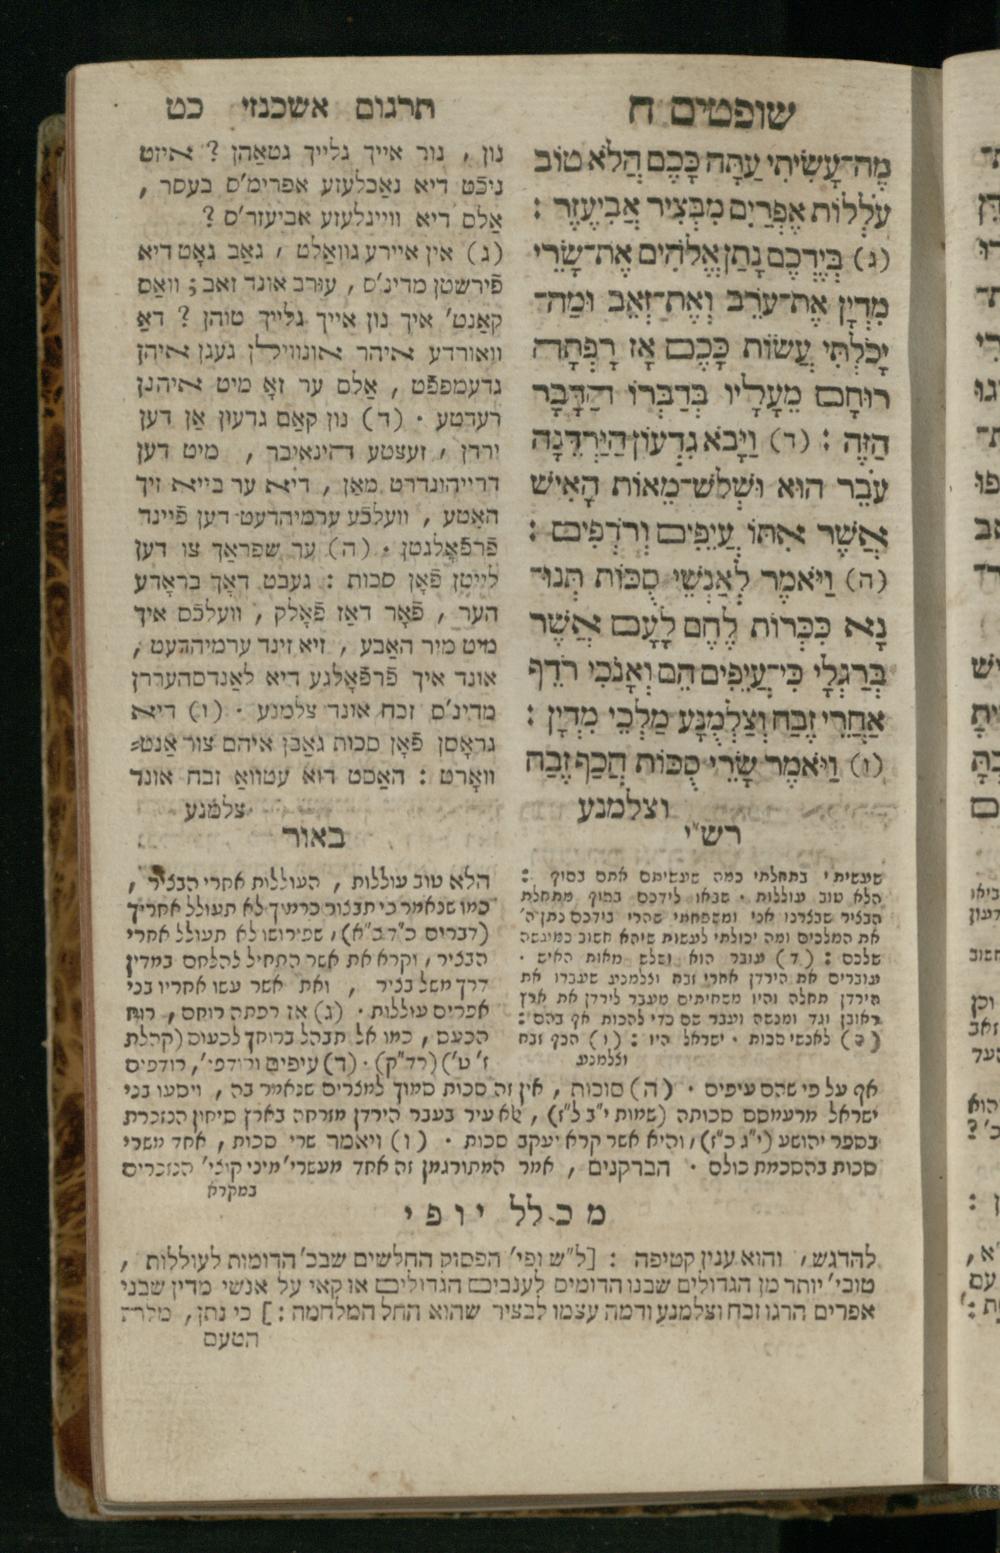 שופטים ח
מֶה־עָשִׂיתִי עַתָּה כָּכֶם הֲלֹא טוֹב
עֹלְלוֹת אֶפְרַיִם מִבְּצִיר אֲבִיעֶזֶר :
(ג) בְּיֶדְכֶם נָתַן אֱלֹהִים אֶת־שָׂרֵי
מִדְיָן אֶת־עֹרֵב וְאֶת־זְאֵב וּמַה־
יָּכֹלְתִּי עֲשׂוֹת כָּכֶם אָז רָפְתָה
רוּחָם מֵעָלָיו בְּדַבְּרוֹ הַדָּבָר
הַזֶּה : (ד) וַיָּבֹא גִדְעוֹן הַיַּרְדֵּנָה
עֹבֵר הוּא וּשְׁלֹשׁ־מֵאוֹת הָאִישׁ
אֲשֶׁר אִתּוֹ עֲיֵפִים וְרֹדְפִים :
(ה) וַיֹּאמֶר לְאַנְשֵׁי סֻכּוֹת תְּנוּ־
נָא כִּכְּרוֹת לֶחֶם לָעָם אֲשֶׁר
בְּרַגְלָי כִּי־עֲיֵפִים הֵם וְאָנֹכִי רֹדֵף
אַחֲרֵי זֶבַח וְצַלְמֻנָּע מַלְכֵי מִדְיָן :
(ו) וַיֹּאמֶר שָׂרֵי סֻכּוֹת הֲכַף זֶבַח
וצלמנע
תרגום אשכנזי כט
נון , נור אייך גלייך געטאַהן ? איזט
ניכֿט דיא נאַכלעזע אפרימ'ס בעסר ,
אַלס דיא וויינלעזע אביעזר'ס ?
(ג) אין איירע גוואַלט , גאַב גאָט דיא
פֿירשטן מדינ'ס , עורב אונד זאב ; וואַס
קאָנט' איך נון אייך גלייך טוהן ? דאַ
וואורדע איהר אונווילן געגן איהן
געדעמפפֿט , אַלס ער זאָ מיט איהנן
רעדטע . (ד) נון קאַם גדעון אַן דען
ירדן , זעצטע הינאיבר , מיט דען
דרייהונדרט מאַן , דיא ער בייא זיך
האַטע , וועלכֿע ערמיהדעט דען פֿיינד
פֿרפֿאָלגטן . (ה) ער שפראַך צו דען
לייטן פֿאָן סכות : געבט דאָך בראָדע
הער , פֿאָר דאַז פֿאָלק , וועלכֿס איך
מיט מיר האַבע , זיא זינד ערמיהדעט ,
אונד איך פֿרפֿאָלגע דיא לאַנדסהעררן
מדינ'ס זבח אונד צלמנע . (ו) דיא
גראָסן פֿאָן סכות גאַבן איהם צור אַנט־
וואָרט : האַסט דוא עטוואַ זבח אונד
צלמנע
רש"י
שעשיתי בתחלתי כמה שעשיתם אתם בסוף :
הלא טוב עוללות . שבאו לידכם בסוף מתחלת
הבציר שבצרנו אני ומשפחתי שהרי בידכם נתן ה'
את המלכים ומה יכולתי לעשות שיהא חשוב כמעשה
שלכם : (ד) עובר הוא ושלש מאות האיש .
עוברים את הירדן אחרי זבח וצלמנע שעברו את
הירדן תחלה והיו משחיתים מעבר לירדן את ארץ
ראובן וגד ומנשה ויעבר שם כדי להכות אף בהם :
(ה) לאנשי סכות . ישראל היו : (ו) הכף זבח
וצלמנע
באור
הלא טוב עוללות , העוללות אחרי הבציר ,
כמו שנאמר כי תבצור כרמך לא תעולל אחריך
(דברים כ"ד כ"א), שפירושו לא תעולל אחרי
הבציר , וקרא את אשר התחיל להלחם במדין
דרך משל בציר , ואת אשר עשו אחריו בני
אפרים עוללות . (ג) אז רפתה רוחם , רוח
הכעס , כמו אל תבהל ברוחך לכעוס (קהלת
ז' ט') (רד"ק) . (ד) עיפים ורודפי', רודפים
אף על פי שהם עיפים . (ה) סוכות , אין זה סכות סמוך למצרים שנאמר בה , ויסעו בני
ישראל מרעמסס סכותה (שמות י"ב ל"ז) , אלא עיר בעבר הירדן מזרחה בארץ סיחון הנזכרת
בספר יהושע (י"ג כ"ז), והיא אשר קרא יעקב סכות . (ו) ויאמר שרי סכות , אחד משרי
סכות בהסכמת כולם . הברקנים , אמר המתורגמן זה אחד מעשרי' מיני קוצי' הנזכרים
במקרא
מכלל יופי
להדגש , והוא ענין קטיפה : [ל"ש ופי' הפסוק החלשים שבכ' הדומות לעוללות ,
טובי' יותר מן הגדולים שבנו הדומים לענבים הגדולים או קאי על אנשי מדין שבני
אפרים הרגו זבח וצלמנע ודמה עצמו לבציר שהוא החל המלחמה : ] כי נתן , מלרה
הטעם